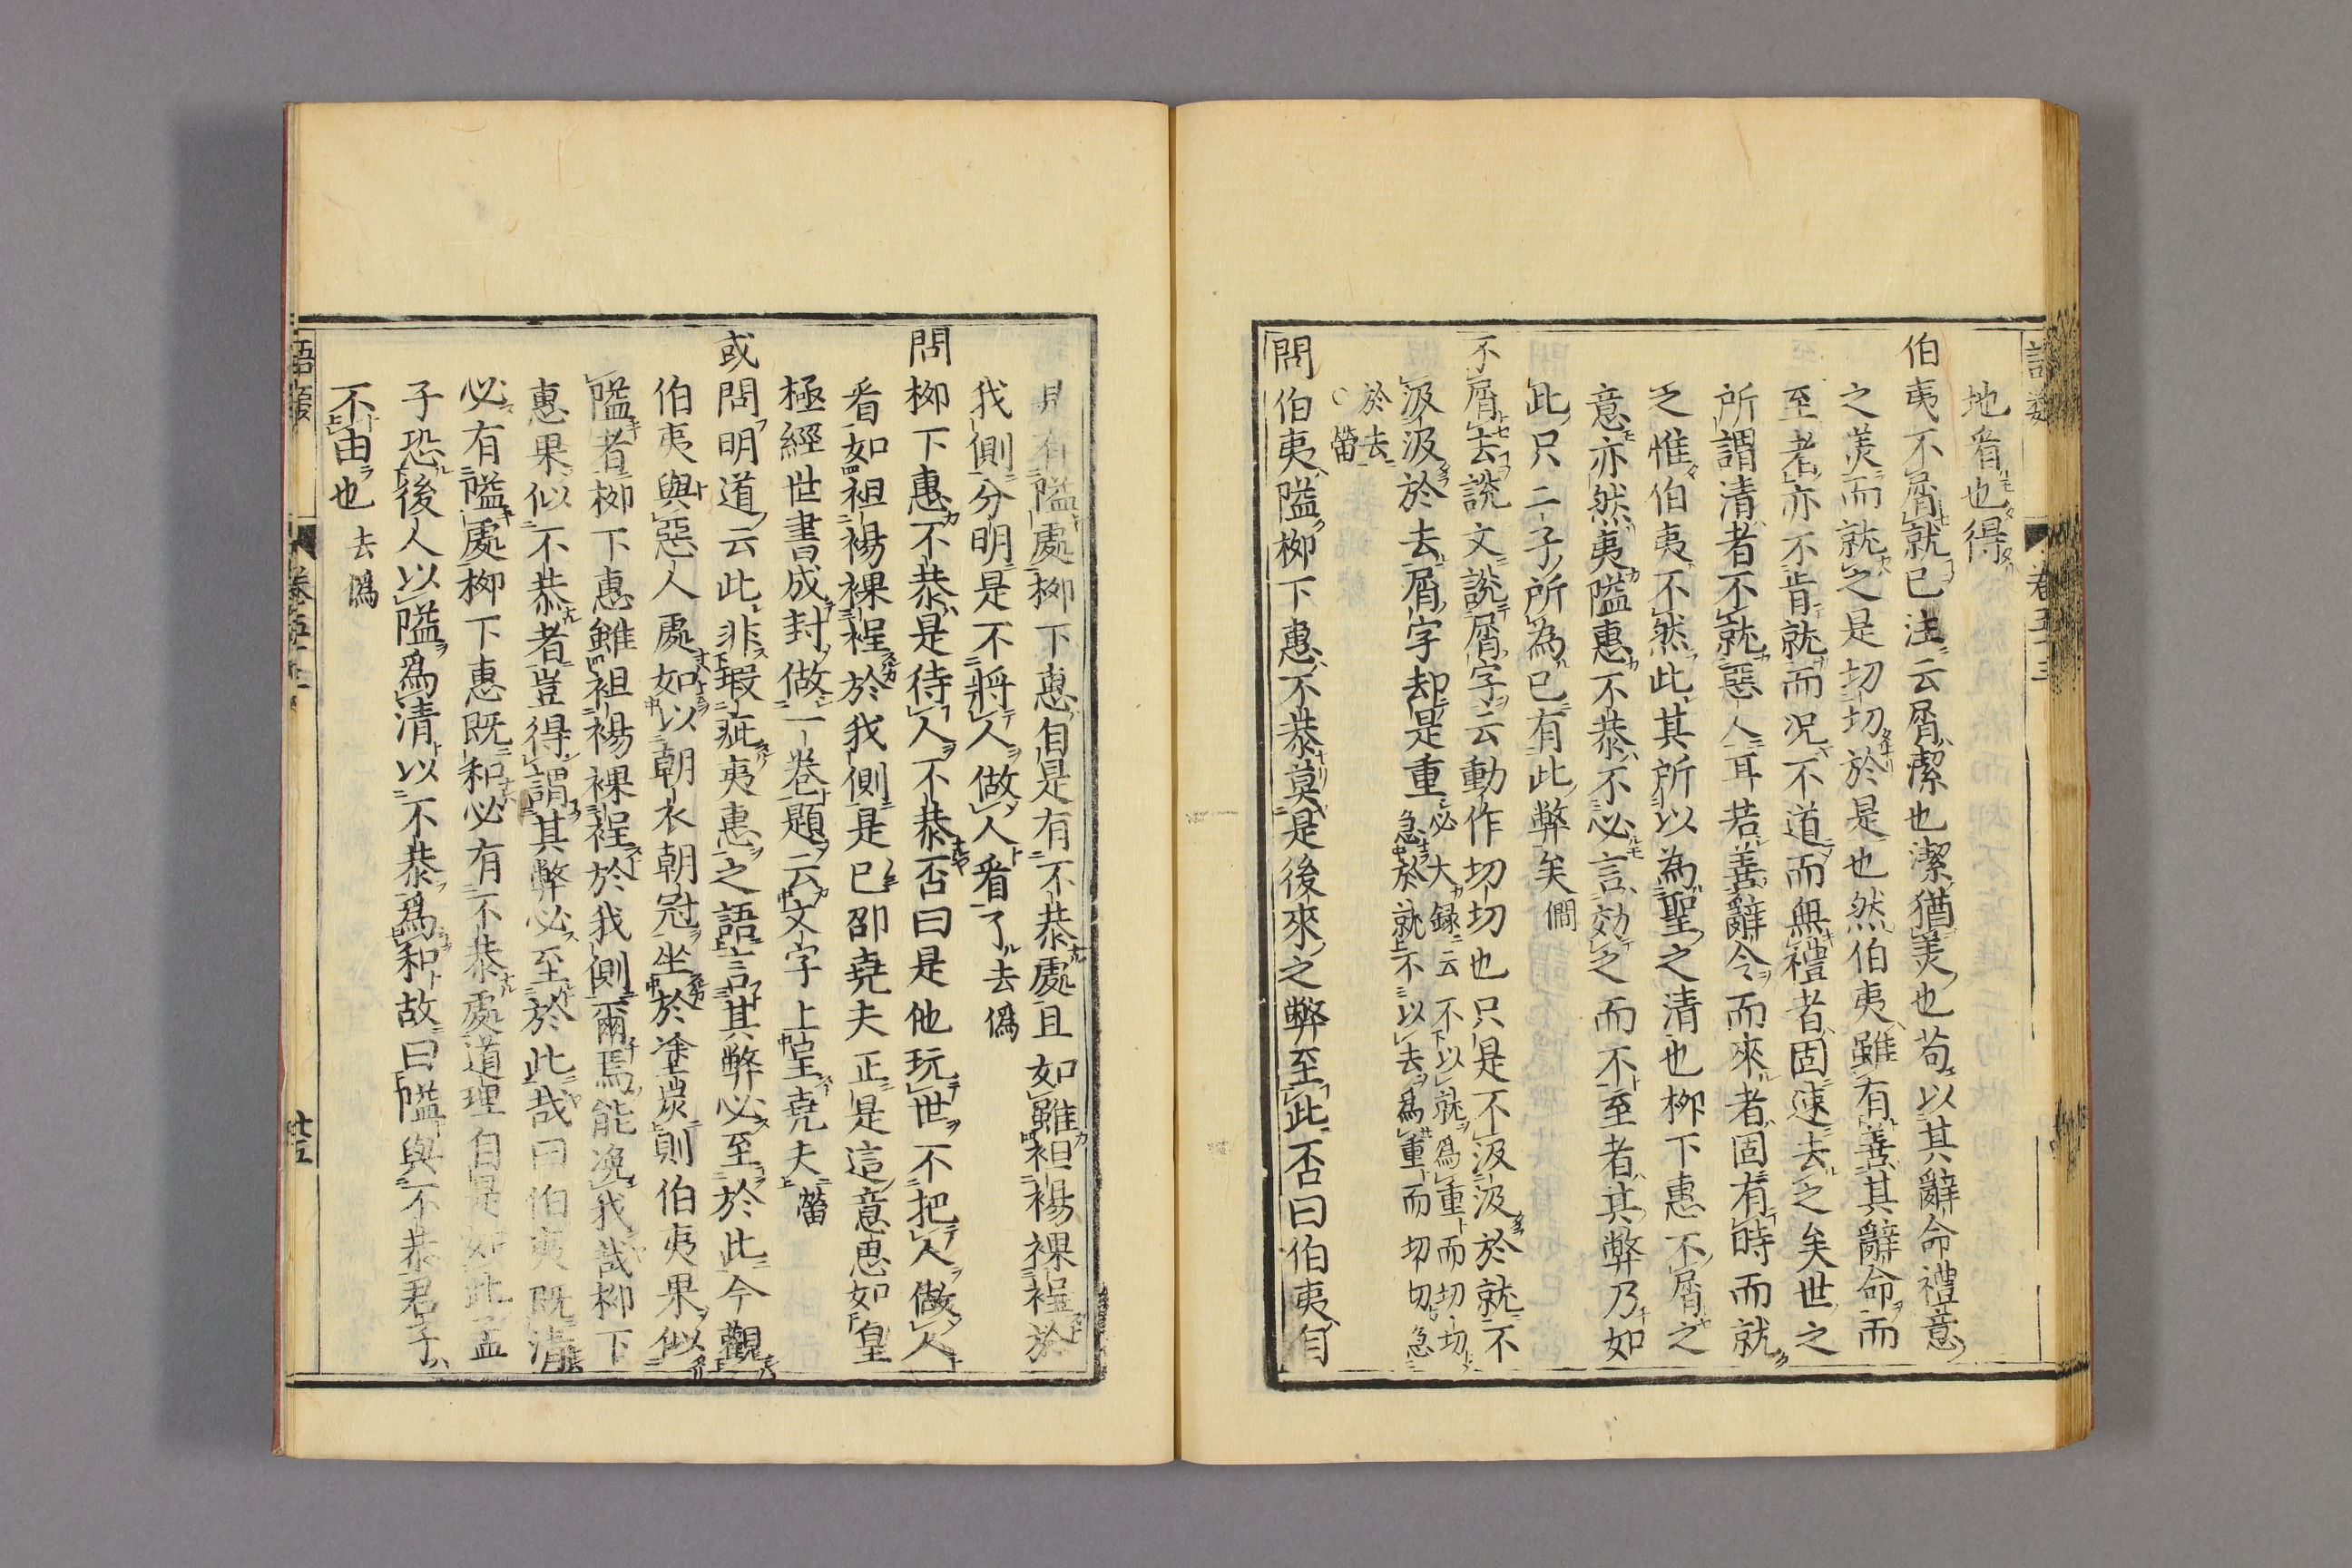 地看也得
伯夷不屑就已注云屑潔也潔猶美也苟以其辭命禮意
之美而就之是切切於是也然伯夷雖有善其辭命而
至者亦不肯就而况不道而無禮者固速去之矣世之
所謂清者不就惡人耳若善辭令而來者固有時而就
之惟伯夷不然此其所以為聖之清也柳下惠不屑之
意亦然夷隘惠不恭不必言効之而不至者其弊乃如
此只二子所為已有此弊矣僩
不屑去說文說屑字云動作切切也只是不汲汲於就不
汲汲於去屑字却是重必大録云不以就為重而切切
急於就不以去為重而切切急
於去
○㽦
問伯夷隘柳下惠不恭莫是後來之弊至此否曰伯夷自
是有隘處柳下惠自是有不恭處且如雖袒裼裸裎於
我側分明是不將人做人看了去偽
問柳下惠不恭是待人不恭否曰是他玩世不把人做人
看如袒裼裸裎於我側是已邵堯夫正是這意思如皇
極經世書成封做一卷題云文字上呈堯夫㽦
或問明道云此非瑕疵夷惠之語言其弊必至於此今觀
伯夷與惡人處如以朝衣朝冠坐於塗炭則伯夷果似
隘者柳下惠雖袒裼裸裎於我側爾焉能浼我哉柳下
惠果似不恭者豈得謂其弊必至於此哉曰伯夷既清
必有隘處柳下惠既和必有不恭處道理自是如此孟
子恐後人以隘為清以不恭為和故曰隘與不恭君子
不由也去偽
語類
卷五十三
廿五